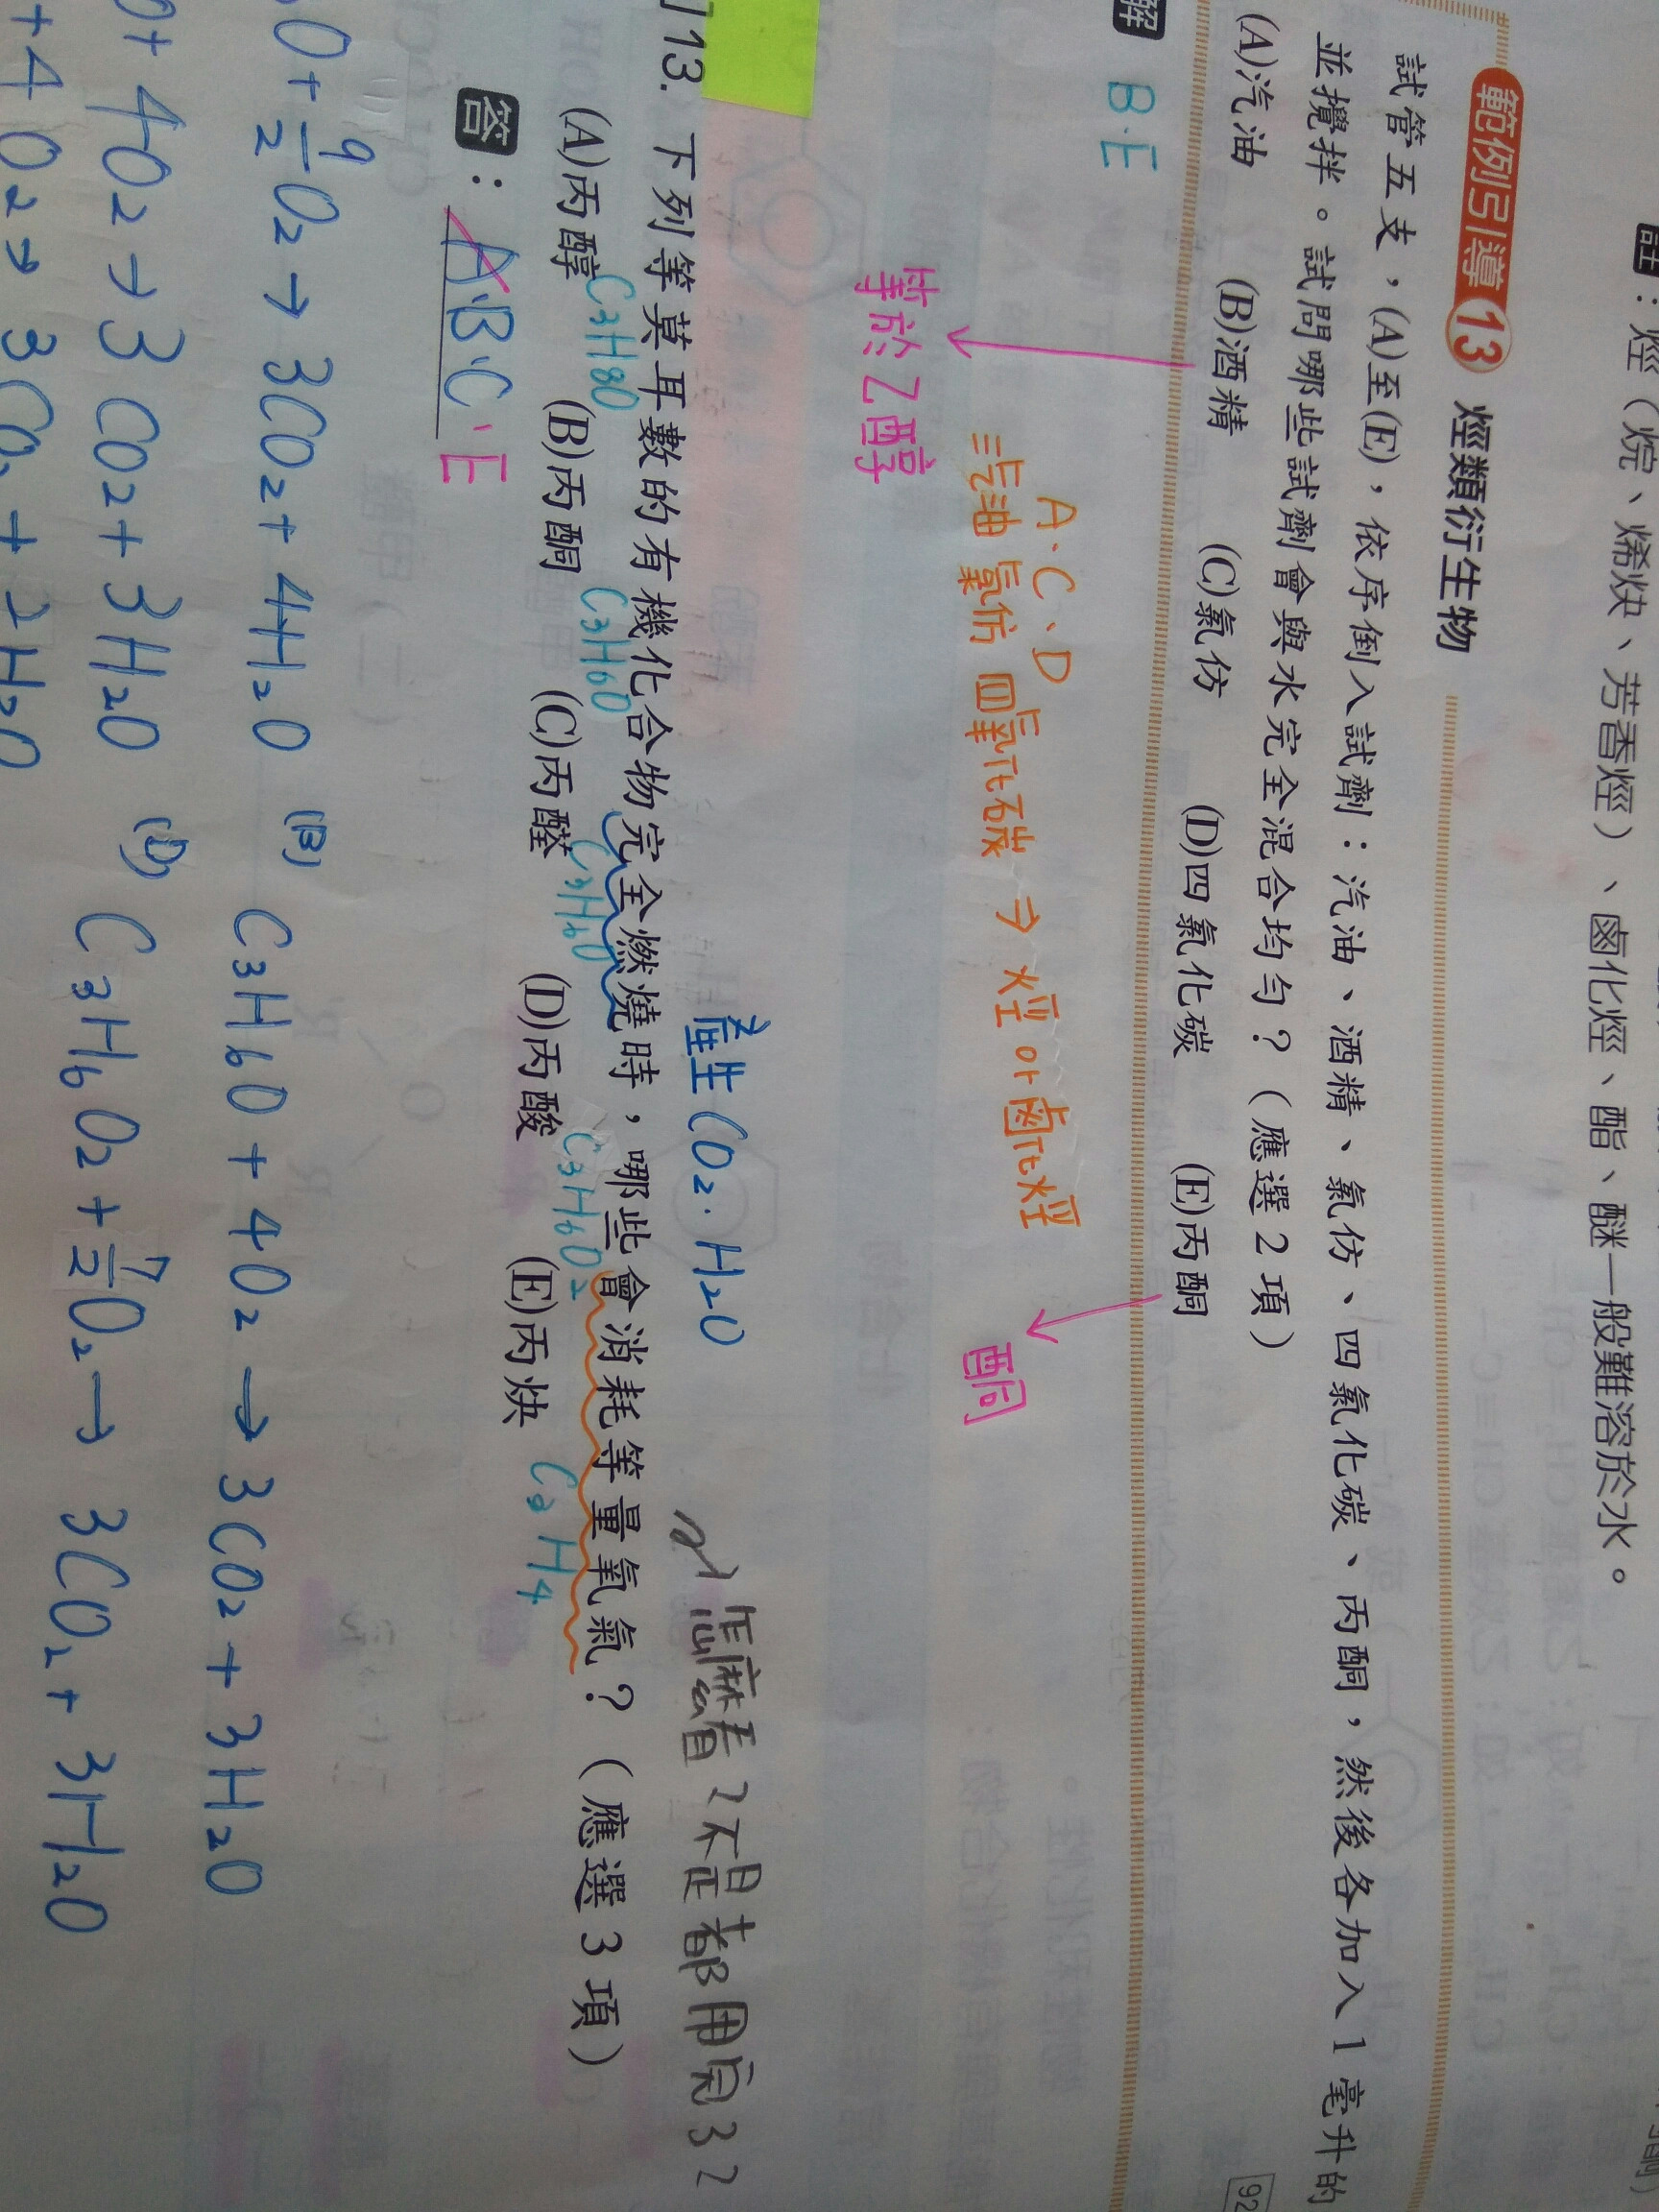 註：烴（烷、烯炔、芳香烴）、鹵化烴、酯、醚一般難溶於水。
範例引導13 烴類衍生物
試管五支，(A)至(E)，依序倒入試劑：汽油、酒精、氯仿、四氯化碳、丙酮，然後各加入1毫升的
並攪拌。試問哪些試劑會與水完全混合均勻？（應選2項）
(A)汽油 (B)酒精 (C)氯仿 (D)四氯化碳 (E)丙酮
92
解 B、E
A、C、D
汽油 氯仿 四氯化碳 → 烴 or 鹵化烴
酮
等於乙醇
產生CO₂、H₂O
怎麼看？不是都用完3？
13. 下列等莫耳數的有機化合物完全燃燒時，哪些會消耗等量氧氣？（應選3項）
C₃H₈O C₃H₆O C₃H₆O C₃H₆O₂ C₃H₄
(A)丙醇 (B)丙酮 (C)丙醛 (D)丙酸 (E)丙炔
答：A、B、C、E
O + 9/2 O₂ → 3CO₂ + 4H₂O (B) C₃H₆O + 4O₂ → 3CO₂ + 3H₂O
O + 4O₂ → 3CO₂ + 3H₂O (D) C₃H₆O₂ + 7/2 O₂ → 3CO₂ + 3H₂O
+ 4O₂ → 3CO₂ + 2H₂O